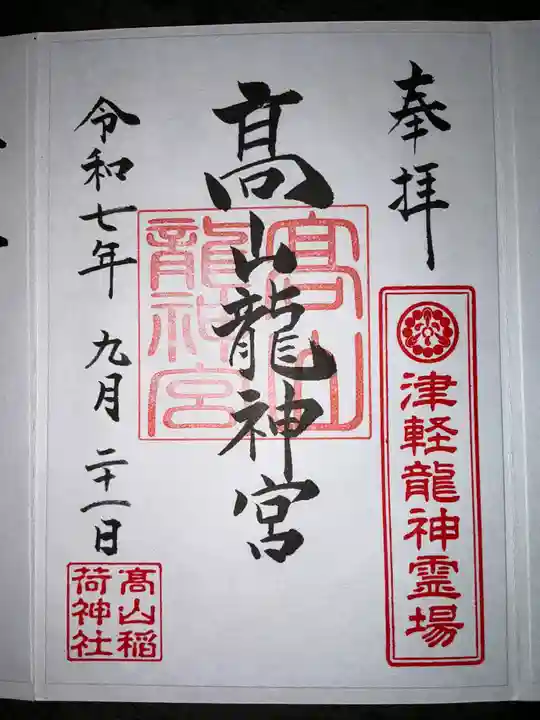 奉拝
津軽龍神霊場
髙山龍神宮
髙山龍神宮
令和七年 九月 二十一日
髙山稲荷神社